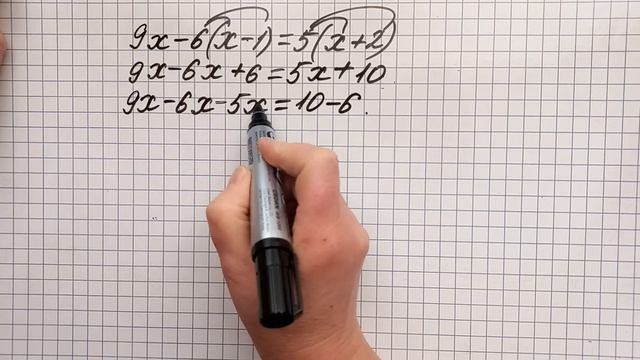 9x-6(x-1)=5(x+2)
9x-6x+6=5x+10
9x-6x-5x=10-6.